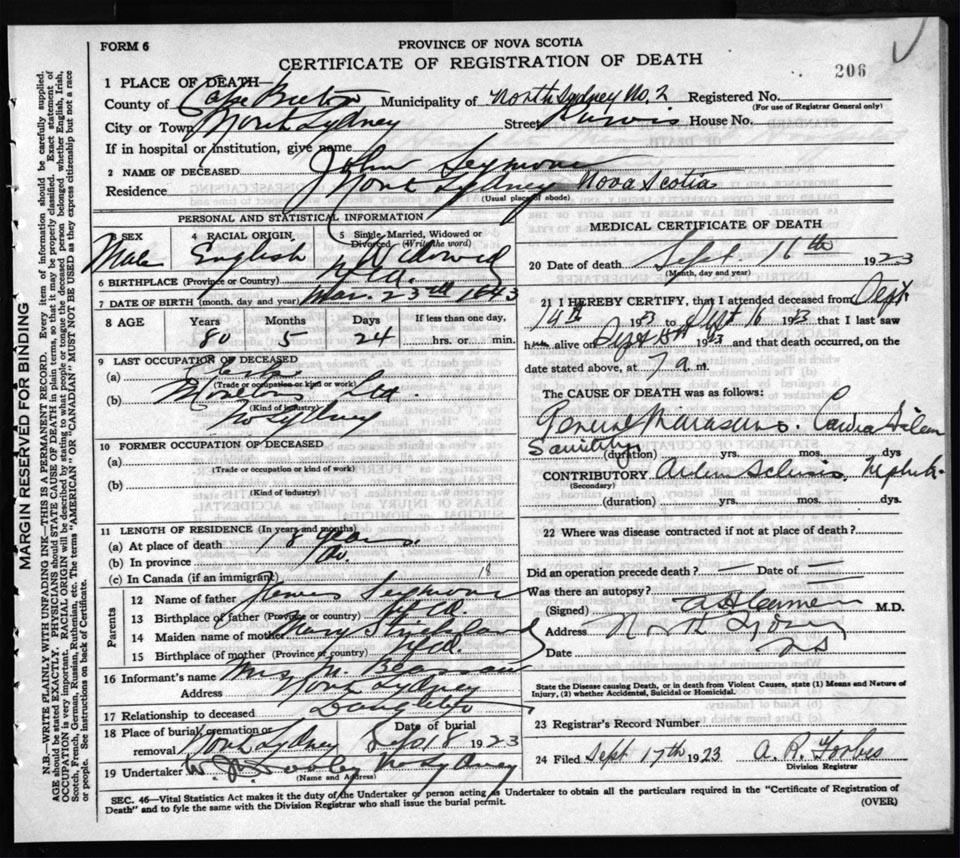 FORM 6
PROVINCE OF NOVA SCOTIA
CERTIFICATE OF REGISTRATION OF DEATH
206
1 PLACE OF DEATH—
County of Cape Breton Municipality of North Sydney No. 2 Registered No.
(For use of Registrar General only)
City or Town North Sydney Street Purvis House No.
If in hospital or institution, give name
2 NAME OF DECEASED John Seymour
Residence North Sydney Nova Scotia
(Usual place of abode)
PERSONAL AND STATISTICAL INFORMATION
3 SEX Male
4 RACIAL ORIGIN English
5 Single, Married, Widowed or Divorced (Write the word) Widowed
6 BIRTHPLACE (Province or Country) Nfld.
7 DATE OF BIRTH (month, day and year) Mar. 23rd 1843
8 AGE Years 80 Months 5 Days 24 If less than one day, hrs. or min.
9 LAST OCCUPATION OF DECEASED
(a) Clerk
(Trade or occupation or kind or work)
(b) Ltd.
(Kind of industry)
No Sydney
10 FORMER OCCUPATION OF DECEASED
(a)
(Trade or occupation or kind of work)
(b)
(Kind of industry)
11 LENGTH OF RESIDENCE (In years and months)
(a) At place of death 18 years.
(b) In province Do.
(c) In Canada (if an immigrant) 18
Parents
12 Name of father Seymour
13 Birthplace of father (Province or country) Nfld.
14 Maiden name of mother Mary Strickland
15 Birthplace of mother (Province or country) Nfld.
16 Informant's name Mrs M.
Address North Sydney
17 Relationship to deceased Daughter
18 Place of burial, cremation or removal North Sydney Date of burial Sept 18 1923
19 Undertaker W. J. Dooley N Sydney
(Name and Address)
MEDICAL CERTIFICATE OF DEATH
20 Date of death Sept 16th 1923
(Month, day and year)
21 I HEREBY CERTIFY, that I attended deceased from Sept
14th 1923 to Sept 16 1923 that I last saw
him alive on Sept 15th 1923 and that death occurred, on the
date stated above, at 7 a.m.
The CAUSE OF DEATH was as follows:
General Marasmus. Cardiac
Senility
(duration) yrs. mos. dys
CONTRIBUTORY Arterio Sclerosis
(Secondary)
(duration) yrs. mos. dys.
22 Where was disease contracted if not at place of death?
Did an operation precede death? — Date of —
Was there an autopsy? —
(Signed) M.D.
Address North Sydney
Date NS
State the Disease causing Death, or in death from Violent Causes, state (1) Means and Nature of
Injury, (2) whether Accidental, Suicidal or Homicidal.
23 Registrar's Record Number
24 Filed Sept 17th 1923 A. R. Forbes
Division Registrar
SEC. 46—Vital Statistics Act makes it the duty of the Undertaker or person acting as Undertaker to obtain all the particulars required in the "Certificate of Registration of
Death" and to fyle the same with the Division Registrar who shall issue the burial permit.
(OVER)
MARGIN RESERVED FOR BINDING
N.B.—WRITE PLAINLY WITH UNFADING INK—THIS IS A PERMANENT RECORD. Every item of information should be carefully supplied.
AGE should be stated EXACTLY. PHYSICIANS should STATE CAUSE OF DEATH in plain terms, so that it may be properly classified. Exact statement of
OCCUPATION is very important. RACIAL ORIGIN will be described by stating to what people or tongue the deceased person belonged whether English, Irish,
Scotch, French, German, Russian, Ruthenian, etc. The terms "AMERICAN" OR "CANADIAN" MUST NOT BE USED as they express citizenship but not a race
or people. See instructions on back of Certificate.